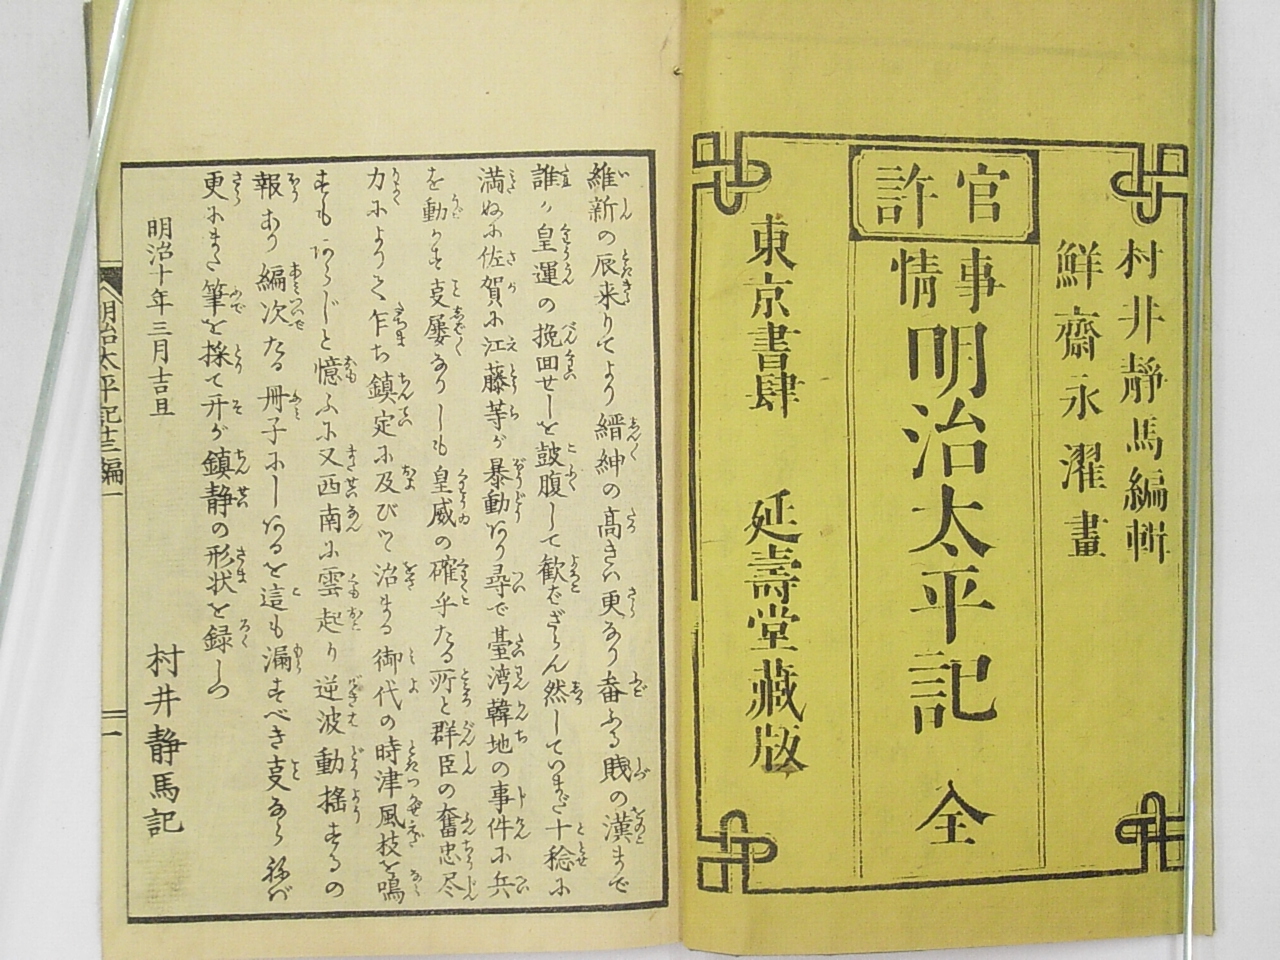 村井靜馬編輯
鮮齋永濯畫
官許
事情
明治太平記 全
東京書肆 延壽堂藏版
維新の辰来りてより縉紳の髙きい更なり畚ふる賎の漢まで
誰か皇運の挽回せしを鼓腹して歓ばざらん然していまだ十稔に
満ぬに佐賀に江藤等が暴動あり尋で臺湾韓地の事件に兵
を動かす支屡なりしも皇威の確乎たる所と群臣の奮忠尽
力によりて乍ち鎮定に及びて治まる御代の時津風枝を鳴
すも あらじと憶ふに又西南に雲起り逆波動揺するの
報あり編次たる冊子にしあるを這も漏すべき支ならねバ
更にまた筆を採て开が鎮静の形状を録しつ
明治十年三月吉旦
村井静馬記
明治太平記十二編一
一